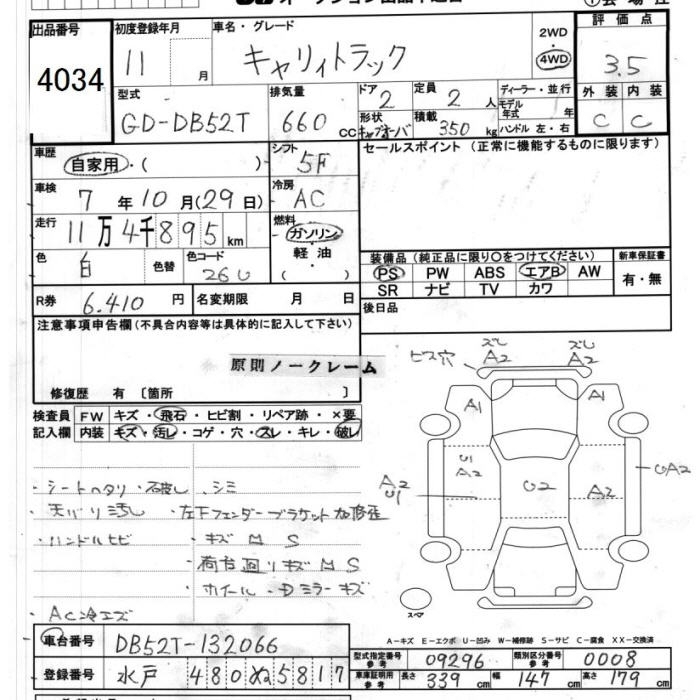 出品番号
4034
初度登録年月
11 月
車名・グレード
キャリィトラック
2WD
4WD
評価点
3.5
外装 内装
C C
型式
GD-DB52T
排気量
660 CC
ドア
2
定員
2 人
形状
積載
350 kg
ディーラー・並行
モデル年式 年
ハンドル 左・右
車歴
自家用・( )
シフト
5F
セールスポイント (正常に機能するものに限ります)
車検
7 年 10 月 (29 日)
冷房
AC
走行
11万4千895 km
燃料
ガソリン
軽油
( )
色
白
色替
色コード
26U
装備品 (純正品に限り〇をつけてください)
PS PW ABS エアB AW
SR ナビ TV カワ
新車保証書
有・無
R券
6.410 円
名変期限 月 日
後日品
注意事項申告欄 (不具合内容等は具体的に記入して下さい)
原則ノークレーム
修復歴 有 〔箇所 〕
検査員記入欄
FW キズ・飛石・ヒビ割・リペア跡・×要
内装 キズ・汚レ・コゲ・穴・スレ・キレ・破レ
・シートヘタリ・破レ・シミ
・天バリ汚レ
・左下フェンダーブラケット加修歪
・ハンドルヒビ
・キズ M S
・荷台回りキズ M S
・ホイール・Dミラーキズ
・AC冷エズ
ビス穴
ズレ
A2
ズレ
A2
A1
A1
U1
A2
A2
U1
U2
A2
UA2
スペア
A-キズ E-エクボ U-凹み W-補修跡 S-サビ C-腐食 XX-交換済
車台番号
DB52T-132066
登録番号
水戸 480 ぬ 5817
型式指定番号 参考
09296
類別区分番号 参考
0008
車庫証明用 参考
長さ 339 cm
幅 147 cm
高さ 179 cm